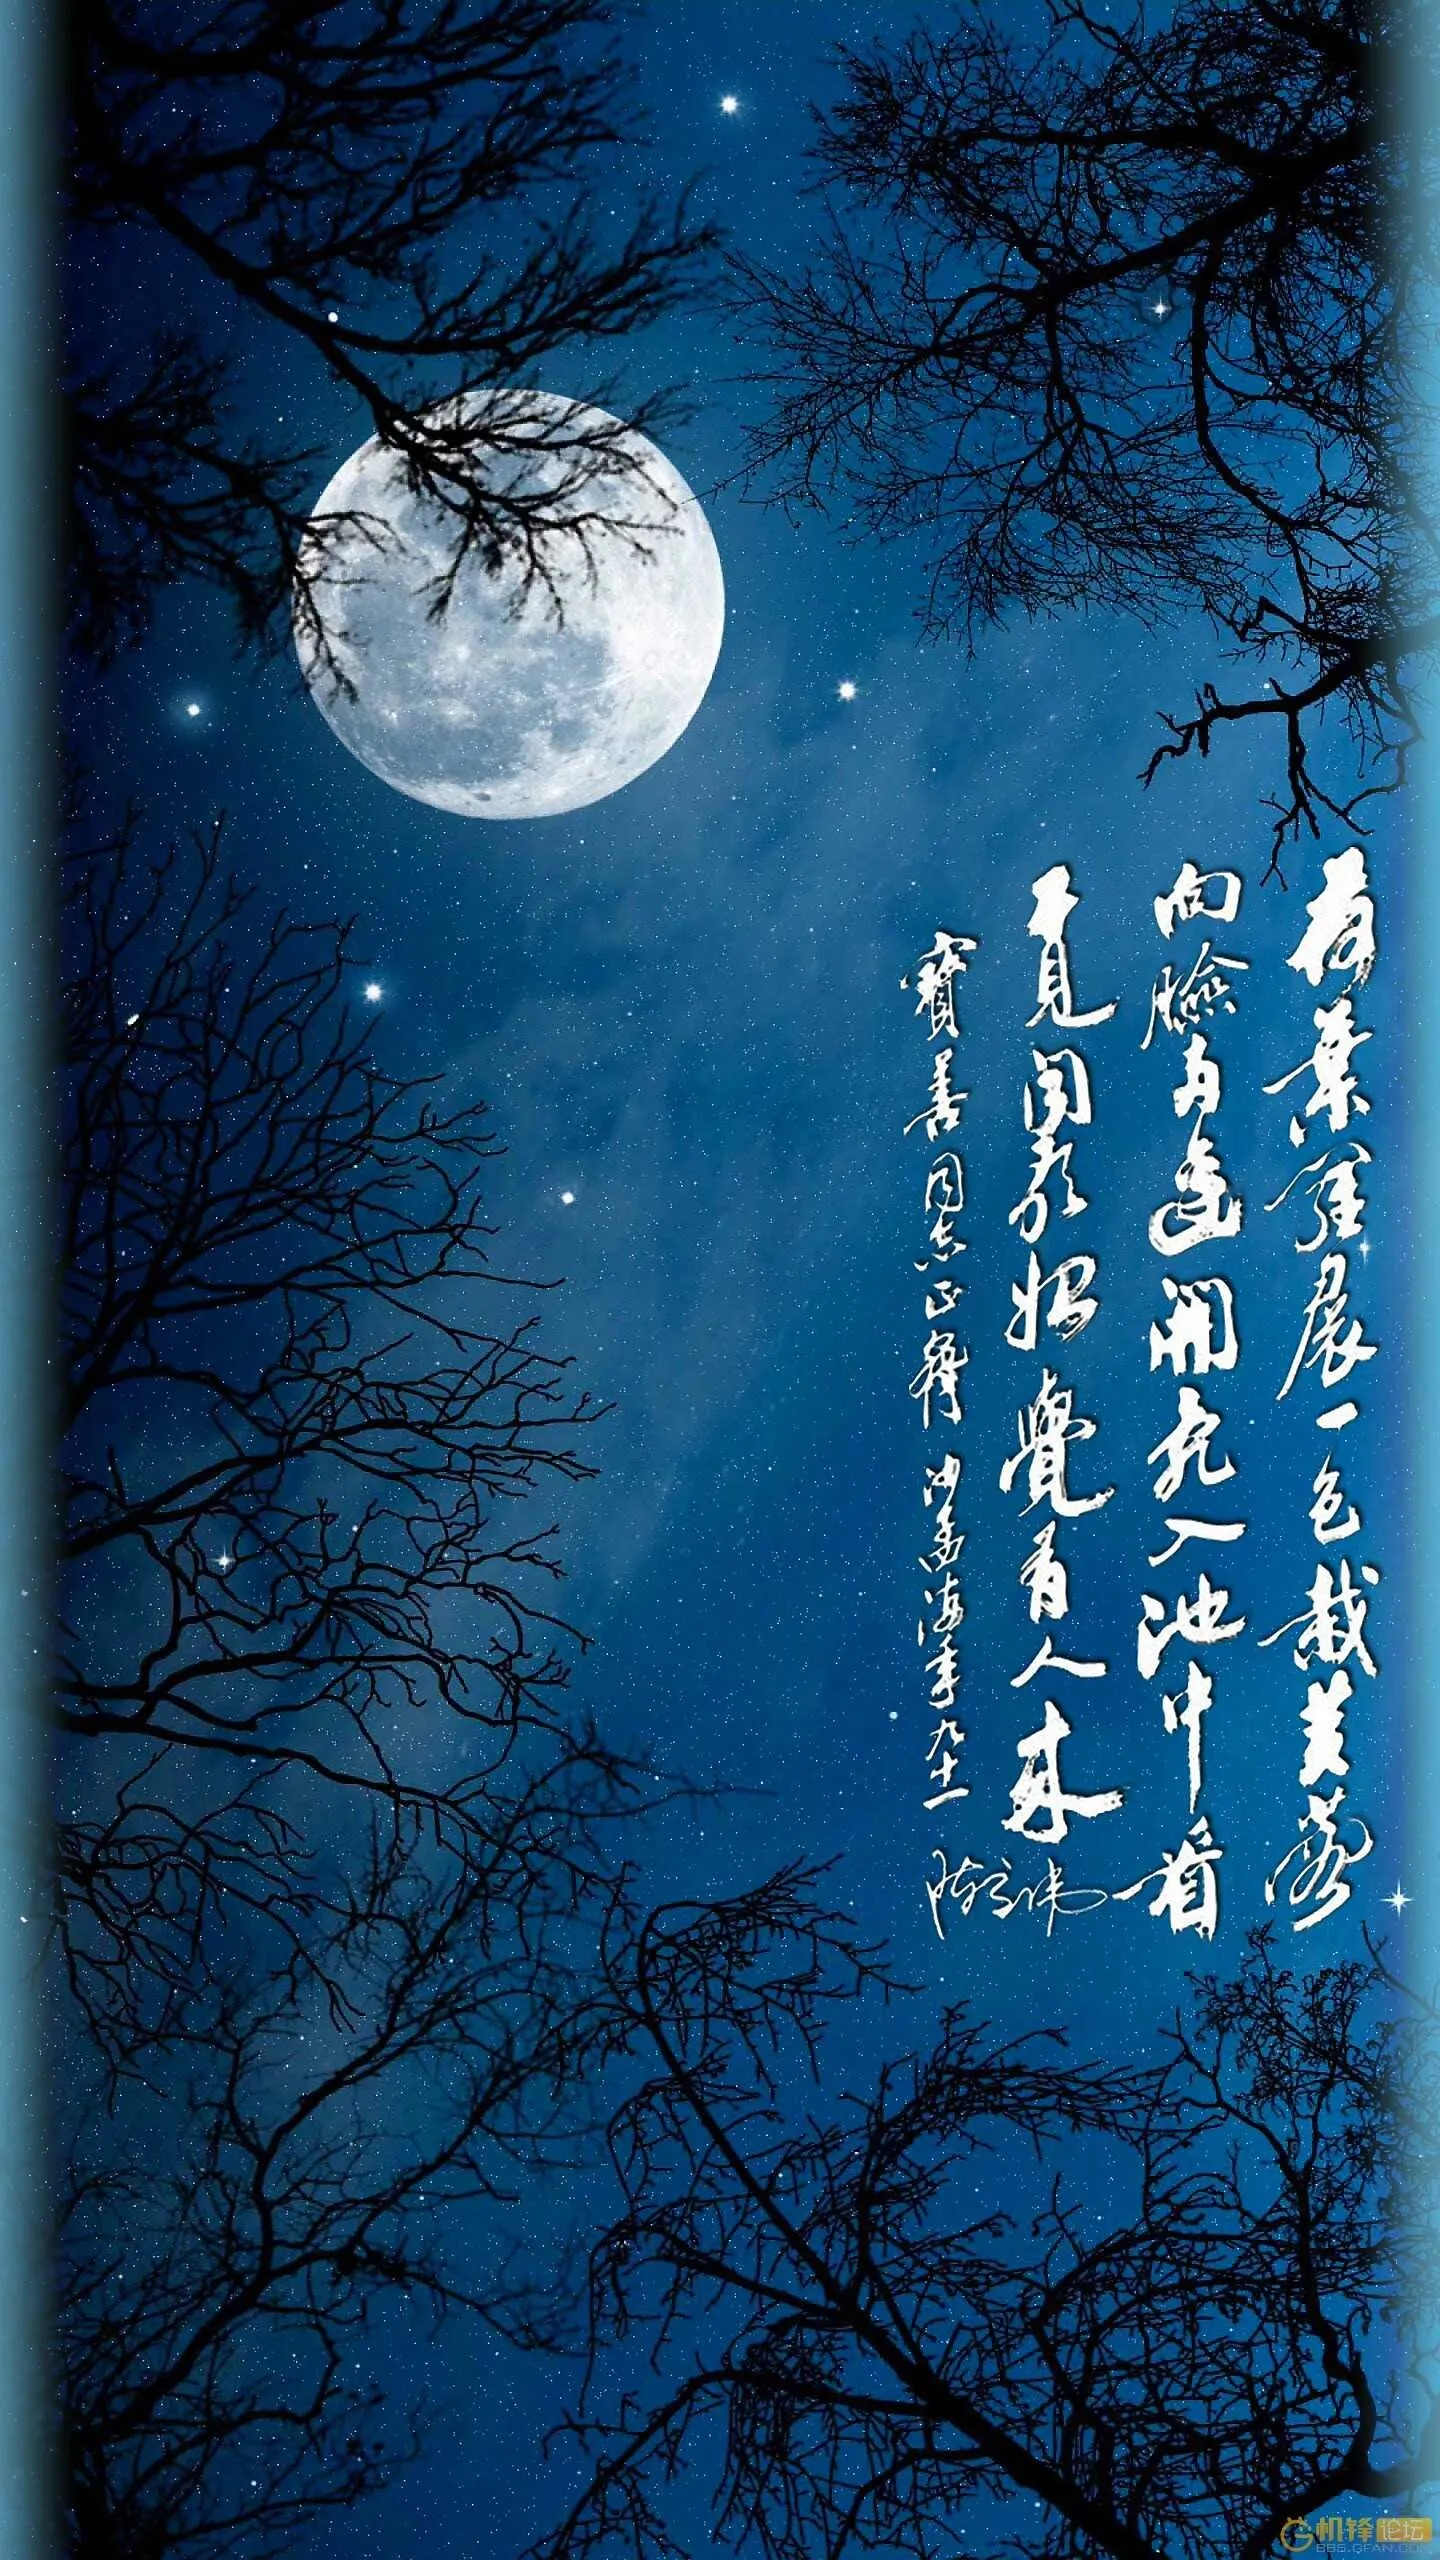 荷葉羅裠一色裁芙蓉
向臉兩邊開亂入池中看
不見聞歌始覺有人來
寶善同志正 沙孟海年九十一
机锋论坛
BBS.GFAN.COM